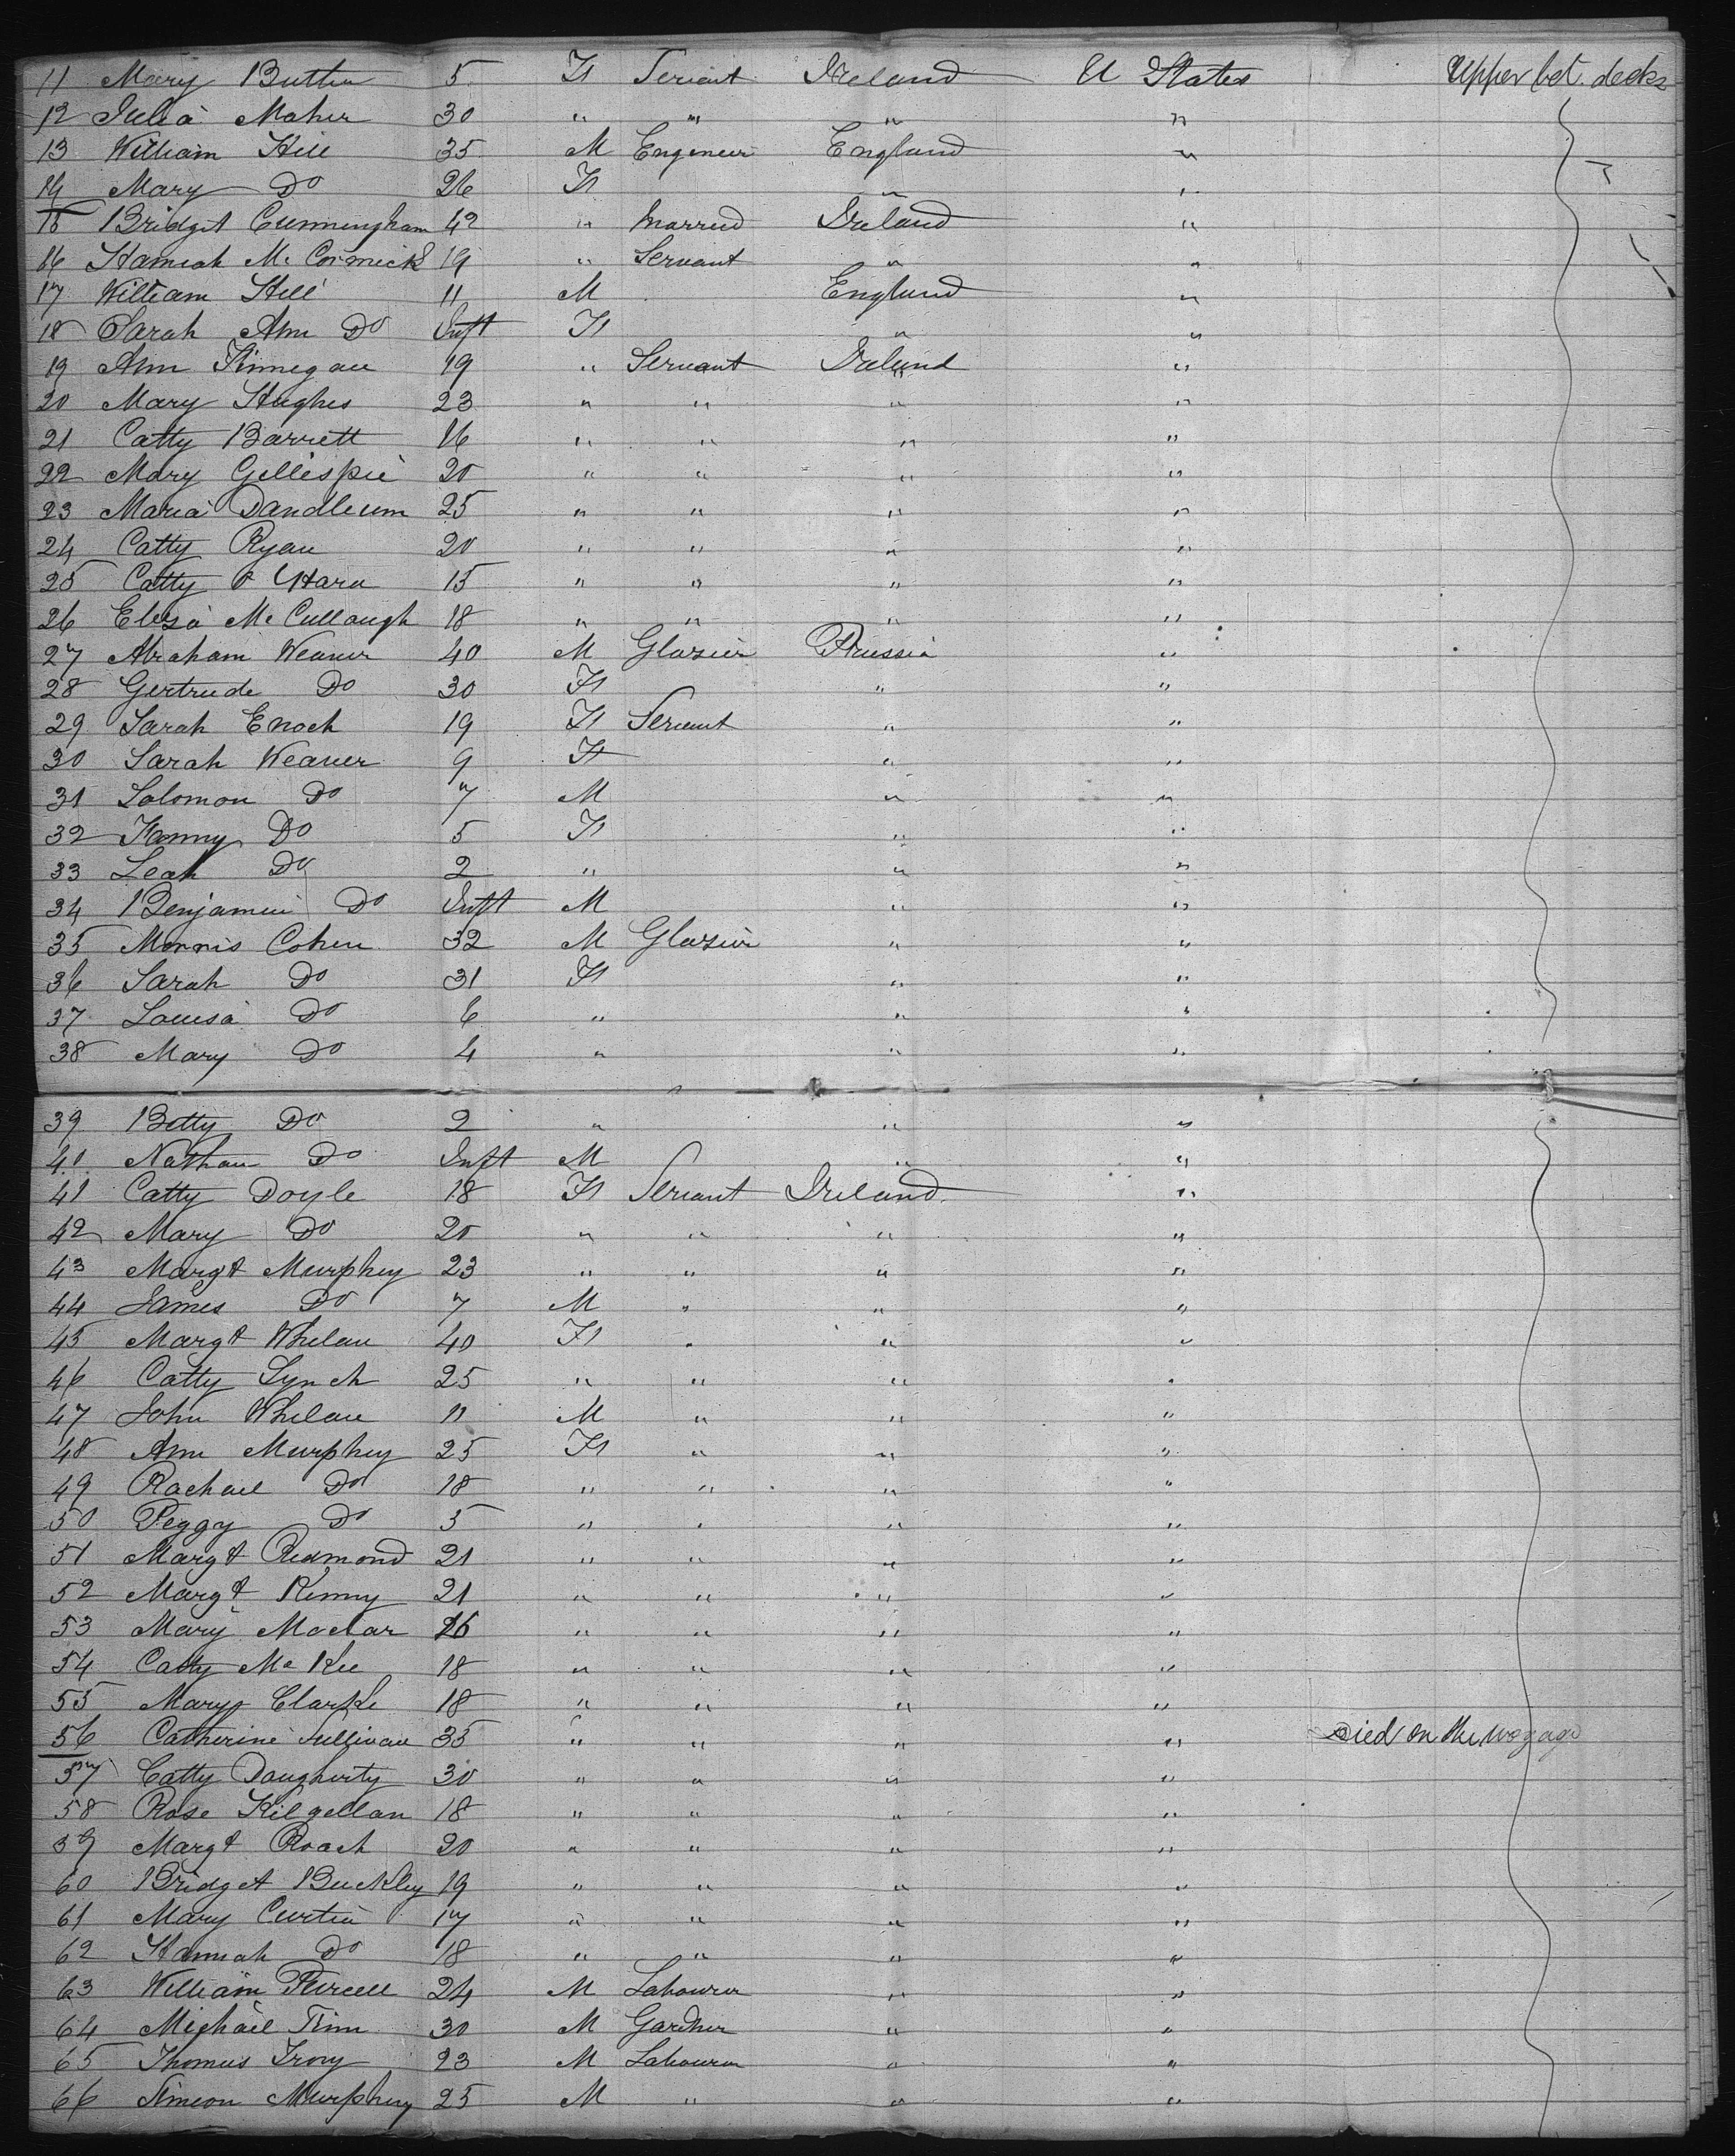 11 Mary Butler 5 F Servant Ireland U States Upper bet. decks
12 Julia Maher 30 " " " "
13 William Hill 35 M Engineer England "
14 Mary Do 26 F " "
15 Bridget Cunningham 42 " Married Ireland "
16 Hannah Mc Cormick 19 " Servant " "
17 William Hill 11 M England "
18 Sarah Ann Do Inft F " "
19 Ann Finnegan 19 " Servant Ireland "
20 Mary Hughes 23 " " " "
21 Catty Barrett 16 " " " "
22 Mary Gillespie 20 " " " "
23 Maria 25 " " " "
24 Catty Ryan 20 " " " "
25 Catty O Hara 15 " " " "
26 Eliza Mc Cullough 18 " " " "
27 Abraham Weaver 40 M Glazier Prussia "
28 Gertrude Do 30 F " "
29 Sarah Enoch 19 F Servant " "
30 Sarah Weaver 9 F " "
31 Solomon Do 7 M " "
32 Fanny Do 5 F " "
33 Leah Do 2 " " "
34 Benjamin Do Inft M " "
35 Morris Cohen 32 M Glazier " "
36 Sarah Do 31 F " "
37 Louisa Do 6 " " "
38 Mary Do 4 " " "
39 Betty Do 2 " " "
40 Nathan Do Inft M " "
41 Catty Doyle 18 F Servant Ireland "
42 Mary Do 20 " " " "
43 Margt Murphy 23 " " " "
44 James Do 7 M " " "
45 Margt Whelan 40 F " " "
46 Catty Lynch 25 " " " "
47 John Whelan 11 M " " "
48 Ann Murphy 25 F " " "
49 Rachael Do 18 " " " "
50 Peggy Do 5 " " " "
51 Margt Redmond 21 " " " "
52 Margt Kenny 21 " " " "
53 Mary 26 " " " "
54 Catty Mc Kee 18 " " " "
55 Mary Clarke 18 " " " "
56 Catherine Sullivan 35 " " " " Died on the voyage
57 Catty Daugherty 30 " " " "
58 Rose Kilgellan 18 " " " "
59 Margt Roach 20 " " " "
60 Bridget Buckley 19 " " " "
61 Mary Curtin 17 " " " "
62 Hannah Do 18 " " " "
63 William Purcell 24 M Labourer " "
64 Michael Finn 30 M Gardner " "
65 Thomas 23 M Labourer " "
66 Simeon Murphy 25 M " " "